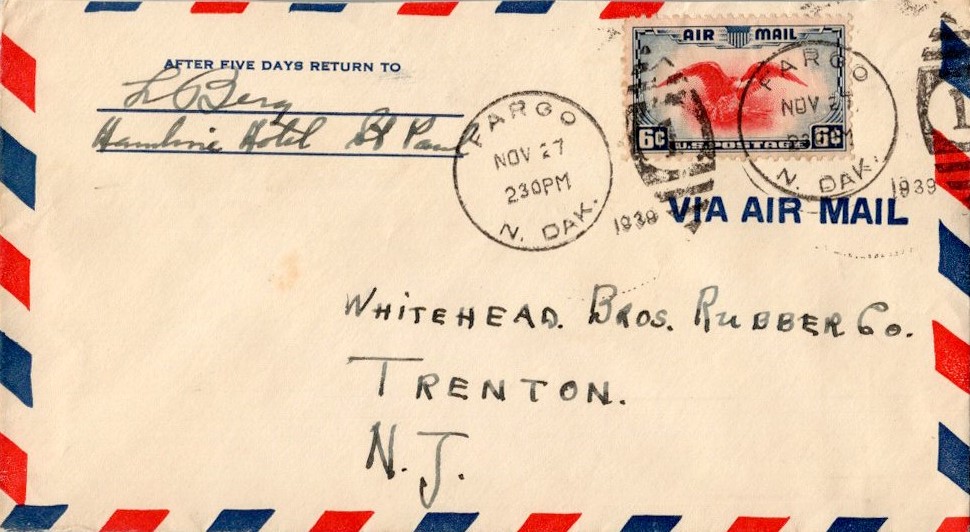 AFTER FIVE DAYS RETURN TO
L Berg
Hamline Hotel St Paul
FARGO
NOV 27
230PM
N. DAK.
1939
AIR MAIL
6¢ U.S. POSTAGE 6¢
FARGO
NOV 27
230PM
N. DAK.
1939
1
VIA AIR MAIL
WHITEHEAD. BROS. RUBBER CO.
TRENTON.
N. J.